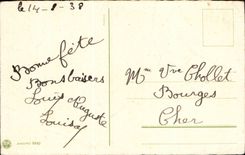 le 14-8-38
Bonne fête
Bons baisers
Louis Auguste
Louisa
Mme Vve Chollet
Bourges
Cher